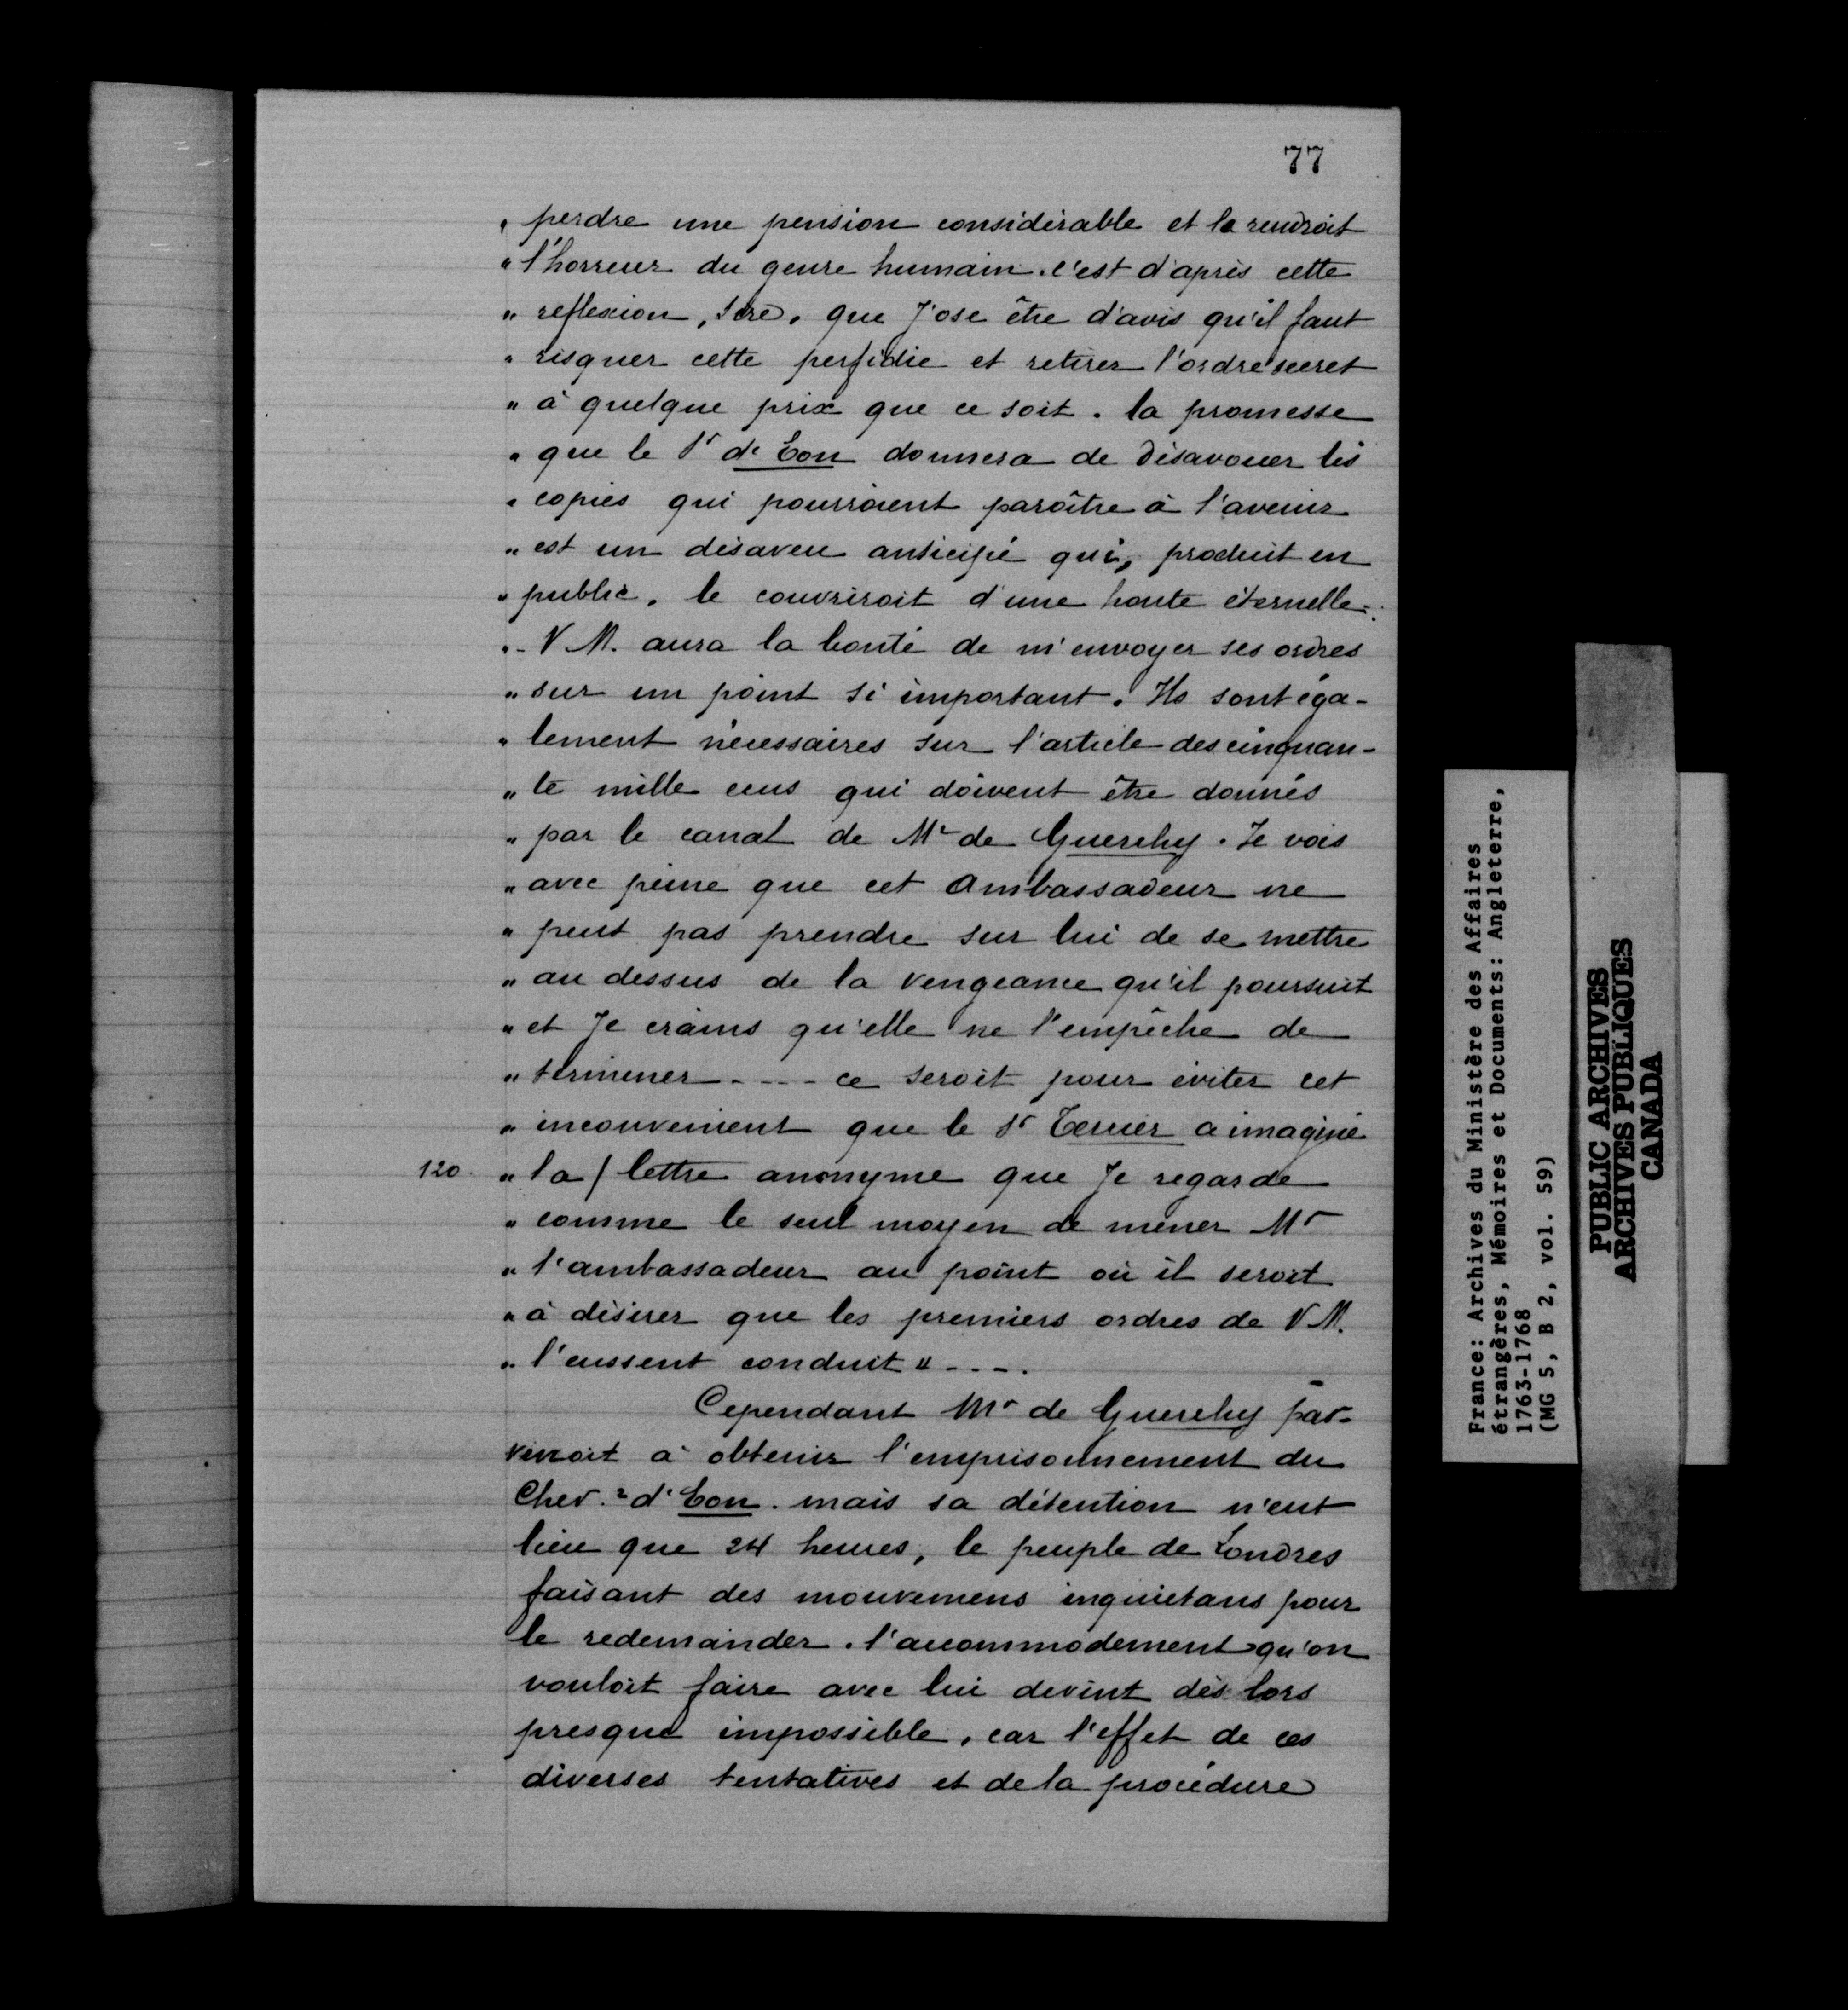 77
" perdre une pension considérable et le rendroit
" l'horreur du genre humain. c'est d'après cette
" reflexion, Sire, que J'ose être d'avis qu'il faut
" risquer cette perfidie et retirer l'ordre secret
" à quelque prix que ce soit. la promesse
" que le Sr d'Eon donnera de désavouer les
" copies qui pourroient paroître à l'avenir
" est un désaveu anticipé qui, produit en
" public, le couvriroit d'une honte éternelle.
" - V M. aura la bonté de m'envoyer ses ordres
" sur un point si important. Ils sont éga-
" lement nécessaires sur l'article des cinquan-
" te mille ecus qui doivent être donnés
" par le canal de Mr de Guerchy. Je vois
" avec peine que cet Ambassadeur ne
" peut pas prendre sur lui de se mettre
" au dessus de la vengeance qu'il poursuit
" et Je crains qu'elle ne l'empêche de
" terminer - - - - ce seroit pour éviter cet
" inconvenient que le Sr Tercier a imaginé
120. " la / lettre anonyme que Je regarde
" comme le seul moyen de mener Mr
" l'ambassadeur au point où il seroit
" à désirer que les premiers ordres de V M.
" l'eussent conduit " - - - .
Cependant Mr de Guerchy par-
venoit à obtenir l'emprisonnement du
Chev.r d'Eon. mais sa détention n'eut
lieu que 24 heures, le peuple de Londres
faisant des mouvemens inquietans pour
le redemander. l'accommodement qu'on
vouloit faire avec lui devint dès lors
presque impossible, car l'effet de ces
diverses tentatives et de la procédure
France: Archives du Ministère des Affaires
étrangères, Mémoires et Documents: Angleterre,
1763-1768
(MG 5, B 2, vol. 59)
PUBLIC ARCHIVES
ARCHIVES PUBLIQUES
CANADA